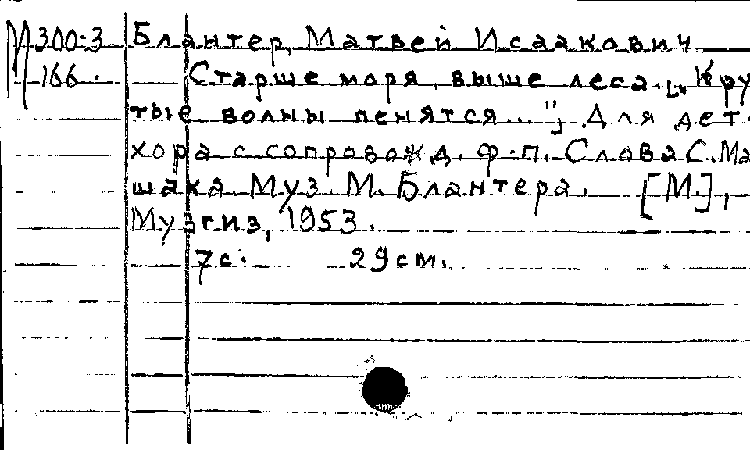 М300:3 Блантер, Матвей Исаакович
166. Старше моря, выше леса. ["Кру
тые волны пенятся..."] Для дет.
хора с сопровожд. ф-п. Слова С. Ма
шака Муз. М. Блантера. [М.],
Музгиз, 1953.
7с. 29см.